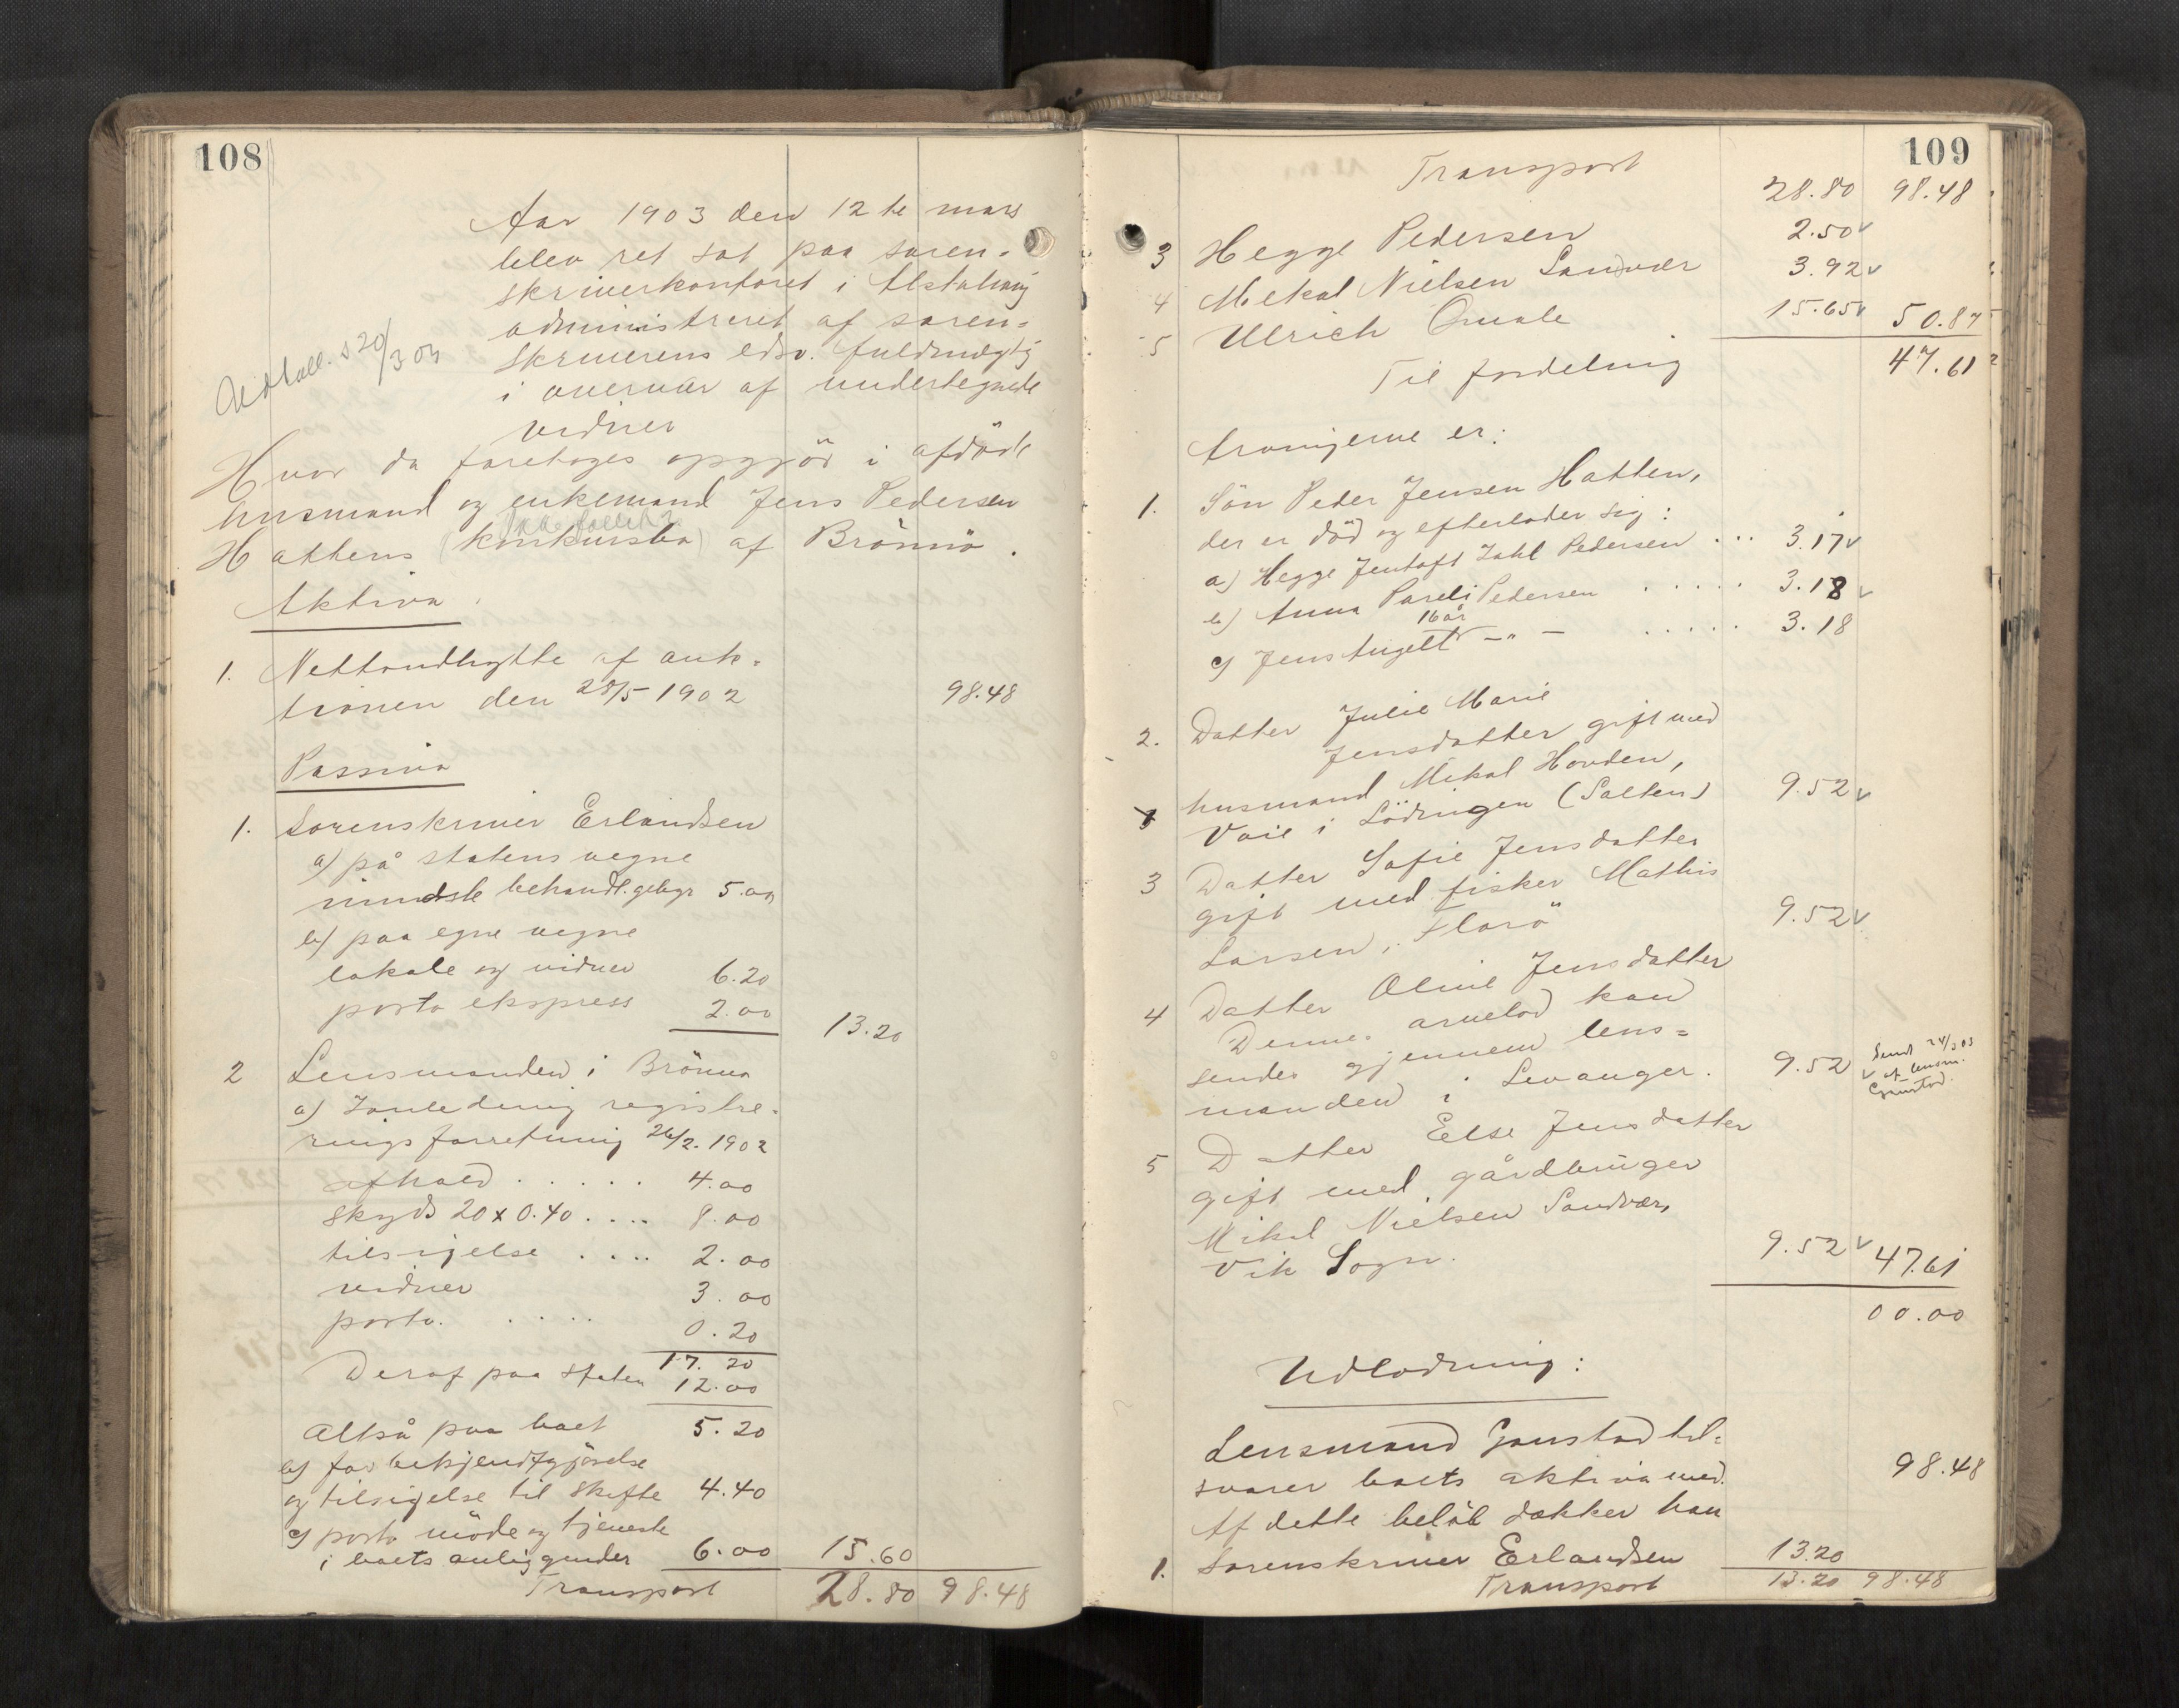 108
Aar 1903 den 12te mars
blev ret sat paa soren-
skriverkontoret i Alstahaug
administreret af soren-
skriverens edsv. fuldmægtig
i overvær af undertegnede
vidner
20/3 03
Hvor da foretoges opgjör i afdöde
husmand og enkemand Jens Pedersen
Hattens (konkursbo) af Brönnö.
Aktiva.
1. Nettoudbytte af auk-
tionen den 28/5 1902 98.48
Passiva
1. Sorenskriver Erlandsen
a) på statens vegne
mindste behandl.gebyr 5.00
b) paa egne vegne
lokale og vidner 6.20
porto ekspress 2.00 13.20
2 Lensmanden i Brönnö
a) Indledning registre-
ringsforretning 26/2. 1902
afhold ..... 4.00
skyds 20 x 0.40 .... 8.00
tilsigelse .... 2.00
vidner 3.00
porto. .... 0.20
17.20
Deraf paa staten 12.00
Altså paa boet 5.20
b) for bekjendtgjörelse
og tilsigelse til skifte 4.40
c) porto möde og tjeneste
i boets anliggender 6.00 15.60
Transport 28.80 98.48
109
Transport 28.80 98.48
3 Hegge Pedersen 2.50
4 Mekal Nielsen Sandvær 3.92
5 Ulrich Qvale 15.65 50.87
Til fordeling 47.61
Arvingerne er:
1. Sön Peder Jensen Hatten,
der er död og efterlader sig:
a) Hegge Jentoft Dahl Pedersen ... 3.17
b) Anna Pareli Pedersen ..... 3.18
16 år
c) Jens Angell -"- ..... 3.18
2. Datter Julie Marie
Jensdatter gift med
husmand Mikal Hovden,
Vaie i Lödingen (Salten) 9.52
3 Datter Sofie Jensdatter
gift med fisker Mathis
Larsen, Florö 9.52
4 Datter Oline Jensdatter
Dennes arvelod kan
sendes gjennem lens-
manden i Levanger. 9.52
Sendt 24/3 03
af lensm.
Gaustad.
5 Datter Else Jensdatter
gift med gårdbruger
Mikal Nielsen Sandvær,
Vik Sogn. 9.52 47.61
00.00
Udlodning:
Lensmand Gaustad til-
svarer boets aktiva med. 98.48
Af dette belöb dækker han
1. Sorenskriver Erlandsen 13.20
Transport 13.20 98.48